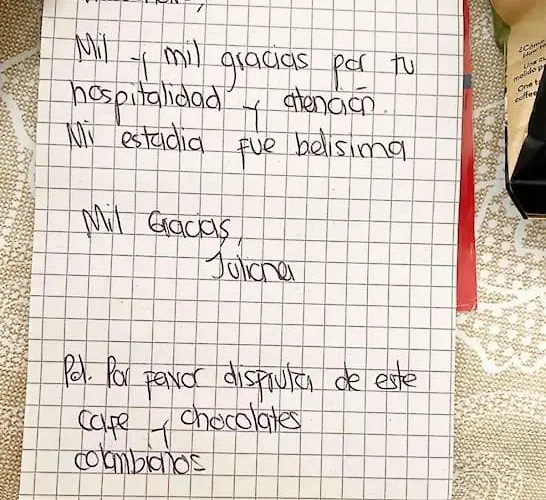 Mil y mil gracias por tu
hospitalidad y atención.
Mi estadia fue belisima
Mil Gracias,
Juliana
Pd. Por favor disfruta de este
cafe y chocolates
colombianos